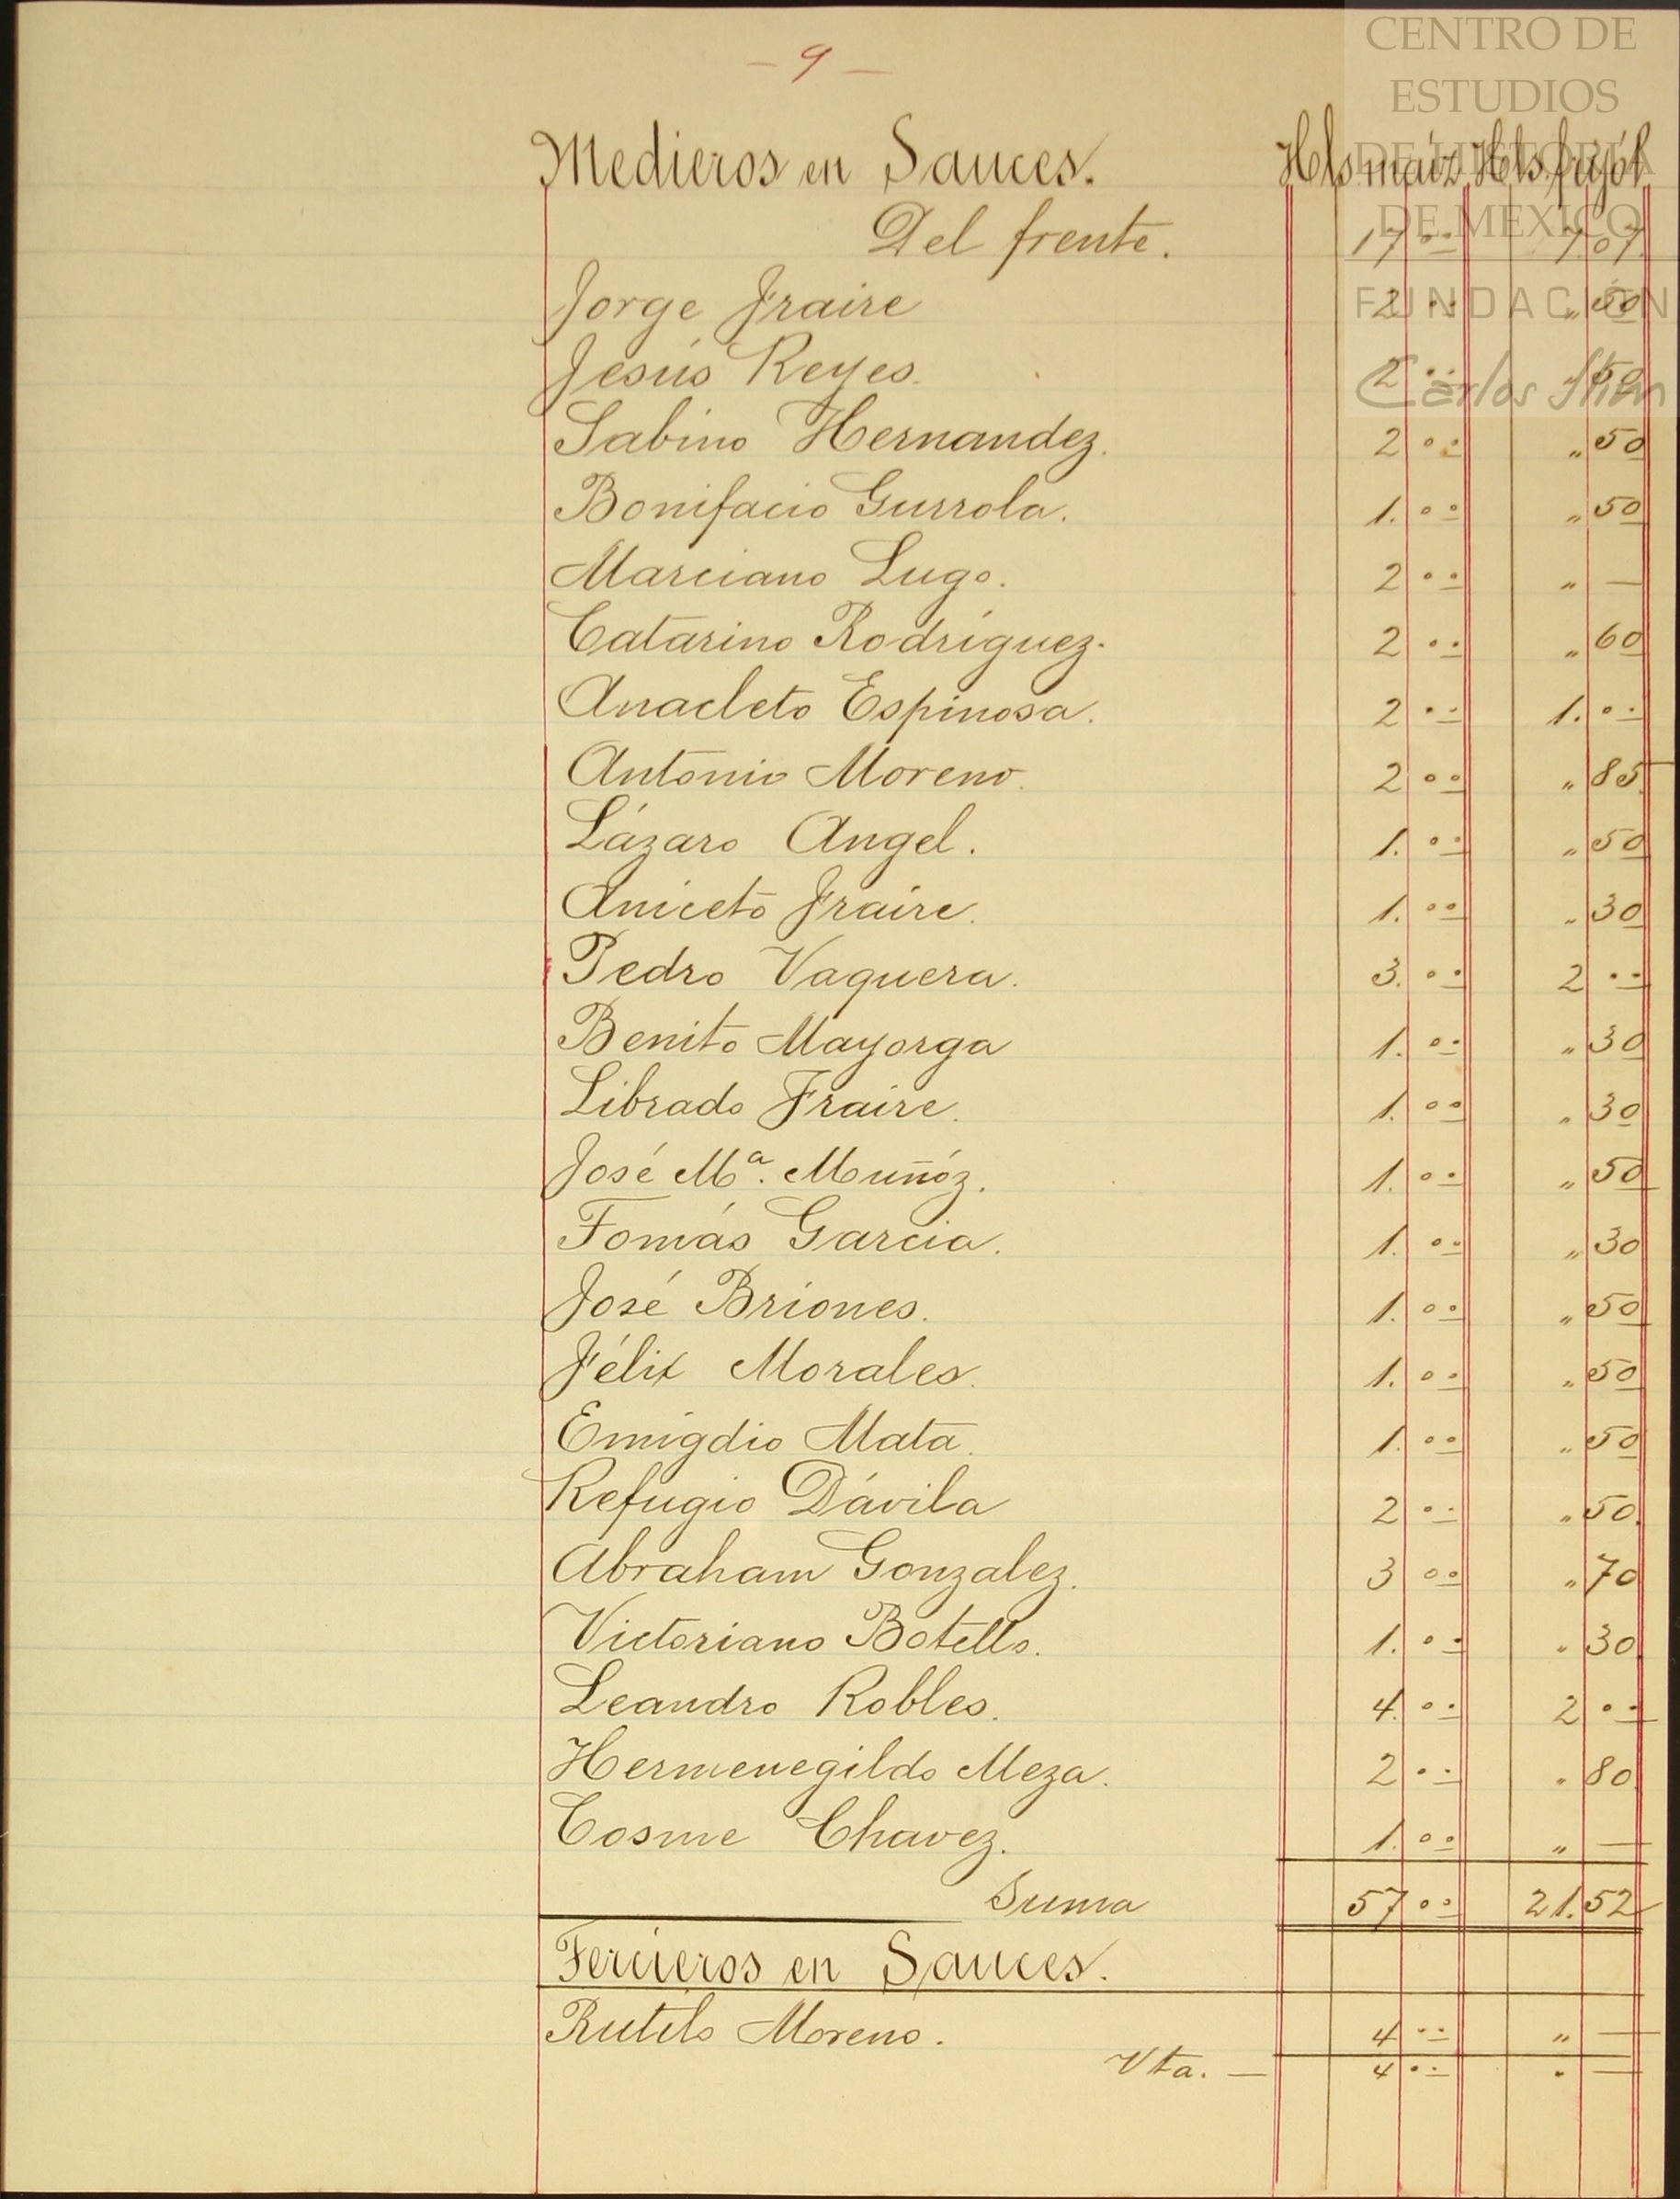 - 9 -
CENTRO DE
ESTUDIOS
DE HISTORIA
DE MEXICO
FUNDACIÓN
Carlos Slim
Medieros en Sauces. Hls maíz Hls. frijól
Del frente. 17 00 7.07.
Jorge Fraire 2 00 " 50
Jesús Reyes. 2 00 " 50
Sabino Hernandez. 2 00 " 50
Bonifacio Gurrola. 1. 00 " 50
Marciano Lugo. 2 00 " —
Catarino Rodríguez. 2 00 " 60
Anacleto Espinosa. 2 00 1. 00
Antonio Moreno. 2 00 " 85
Lázaro Angel. 1. 00 " 50
Aniceto Fraire. 1. 00 " 30
Pedro Vaquera. 3. 00 2 00
Benito Mayorga 1. 00 " 30
Librado Fraire. 1. 00 " 30
José Mª. Muñóz. 1. 00 " 50
Tomás Garcia. 1. 00 " 30
José Briones. 1. 00 " 50
Félix Morales. 1. 00 " 50
Emigdio Mata. 1. 00 " 50
Refugio Dávila 2 00 " 50.
Abraham Gonzalez. 3 00 " 70
Victoriano Botello. 1. 00 " 30
Leandro Robles. 4. 00 2 00
Hermenegildo Meza. 2 00 " 80
Cosme Chavez. 1. 00 " —
Suma 57 00 21.52
Tercieros en Sauces.
Rutilo Moreno. 4 00 " —
Vta. — 4 00 " —